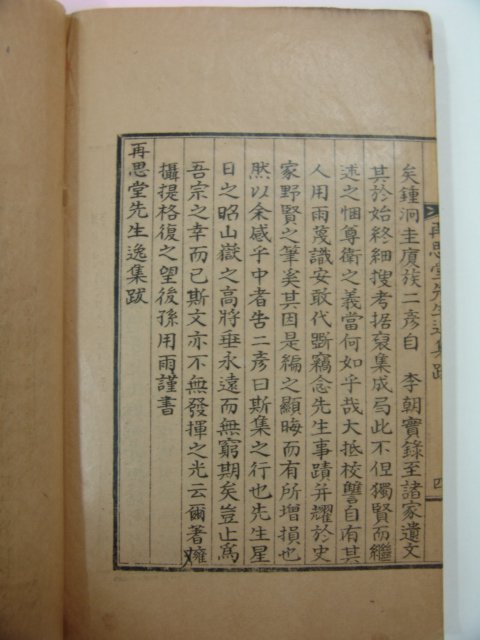 矣鍾泂圭賡族二彦自　李朝實錄至諸家遺文
其於始終細搜考据裒集成局此不但獨賢而繼
述之悃尊衛之義當何如乎哉大抵校讐自有其
人用雨蔑識安敢代斲竊念先生事蹟并耀於史
家野賢之筆奚其因是編之顯晦而有所增損也
然以余感乎中者告二彦曰斯集之行也先生星
日之昭山嶽之高將垂永遠而無窮期矣豈止爲
吾宗之幸而已斯文亦不無發揮之光云爾著雍
攝提格復之望後孫用雨謹書
再思堂先生逸集跋
再思堂先生逸集跋
四